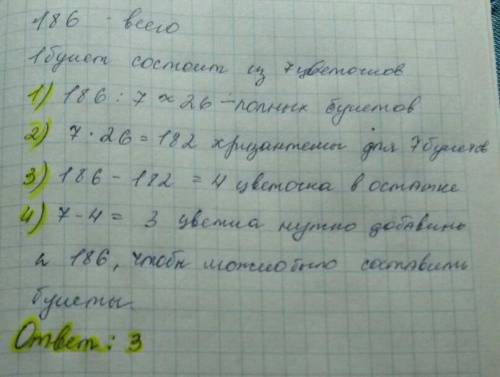 186 - всего
1 букет состоит из 7 цветочков
1) 186 : 7 ≈ 26 - полных букетов
2) 7 · 26 = 182 хризантемы для 7 букетов
3) 186 - 182 = 4 цветочка в остатке
4) 7 - 4 = 3 цветка нужно добавить
к 186, чтобы можно было составить
букеты.
Ответ: 3